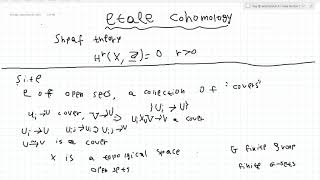 etale cohomology
Sheaf theory
Hʳ(X, Z) = 0 r>0
Site
of open sets, a collection of "covers"
Uᵢ→U cover, V→U Uᵢ×ᵤV→V a cover
Uᵢ→U Uᵢⱼ→Uᵢ Uᵢⱼ→U
U→U is a cover
X is a topological space G finite group
open sets finite G-sets